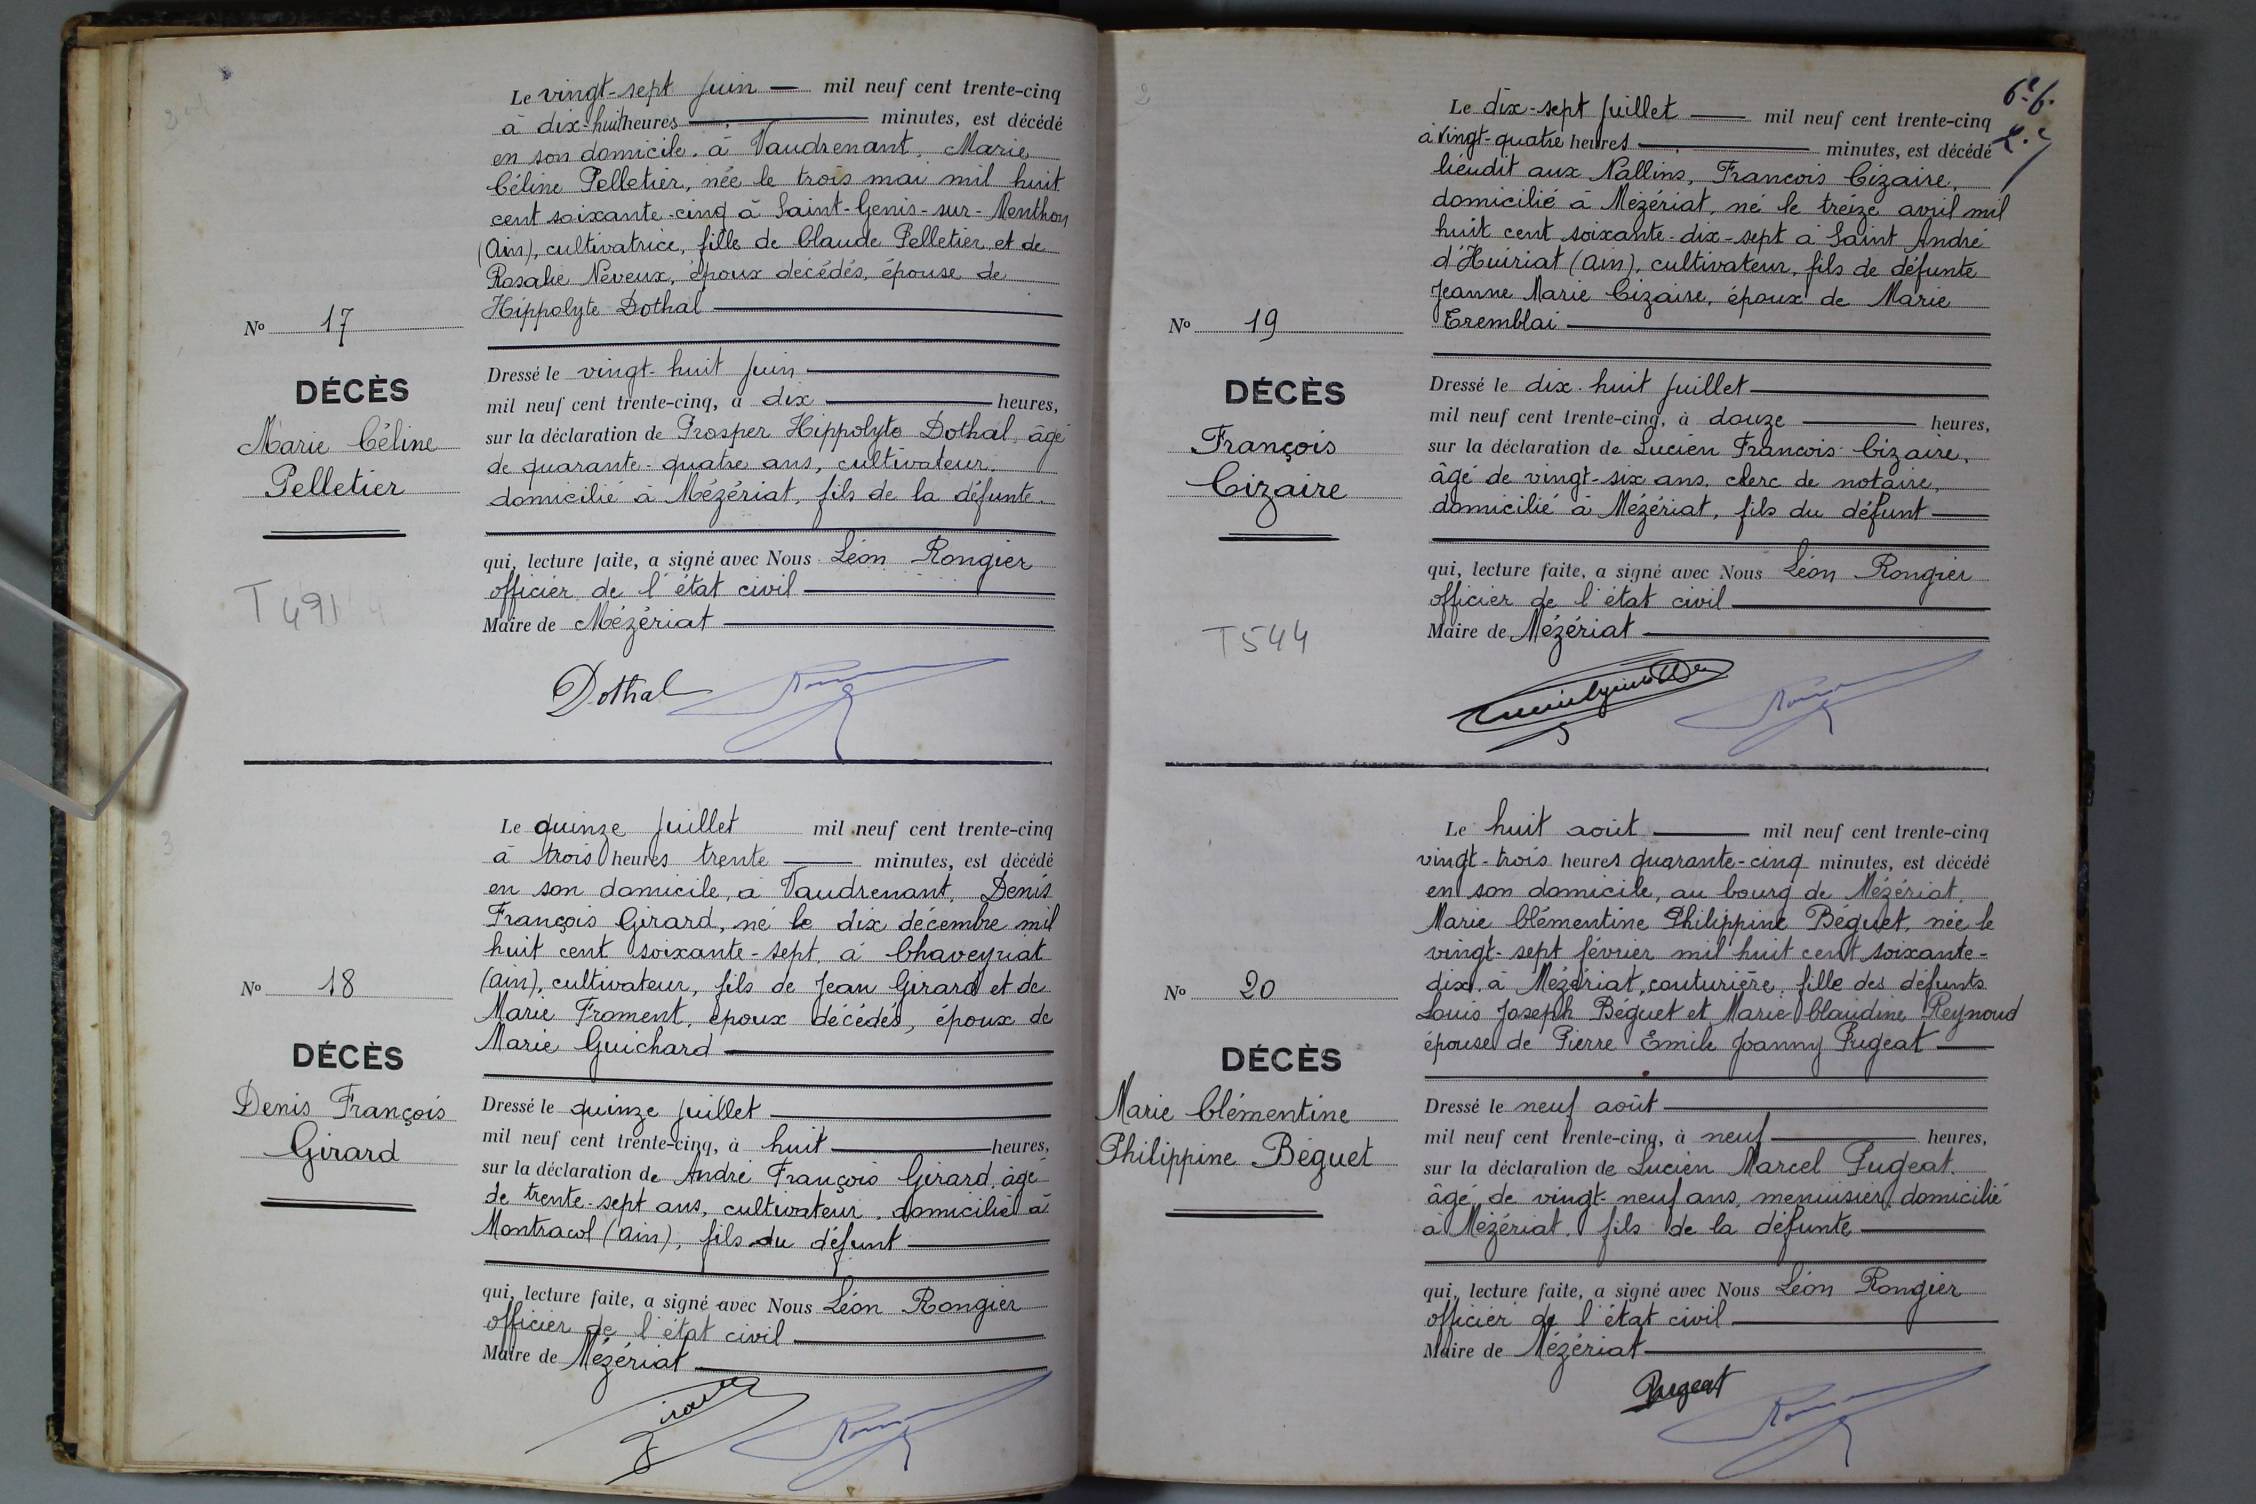 Le vingt-sept Juin — mil neuf cent trente-cinq
à dix-huit heures — minutes, est décédé
en son domicile, à Vaudrenant, Marie
Céline Pelletier, née le trois mai mil huit
cent soixante-cinq à Saint-Genis-sur-Menthon
(Ain), cultivatrice, fille de Claude Pelletier et de
Rosalie Neveux, époux décédés, épouse de
Hippolyte Dothal
No 17
DÉCÈS
Marie Céline
Pelletier
T491
Dressé le vingt-huit Juin
mil neuf cent trente-cinq, à dix heures,
sur la déclaration de Prosper Hippolyte Dothal, âgé
de quarante-quatre ans, cultivateur,
domicilié à Mézériat, fils de la défunte.
qui, lecture faite, a signé avec Nous Léon Rongier
officier de l'état civil
Maire de Mézériat
Dothal
Le quinze Juillet mil neuf cent trente-cinq
à trois heures trente — minutes, est décédé
en son domicile, à Vaudrenant, Denis
François Girard, né le dix décembre mil
huit cent soixante-sept, à Chaveyriat
(Ain), cultivateur, fils de Jean Girard et de
Marie Froment, époux décédés, époux de
Marie Guichard
No 18
DÉCÈS
Denis François
Girard
Dressé le quinze Juillet
mil neuf cent trente-cinq, à huit heures,
sur la déclaration de André François Girard, âgé
de trente-sept ans, cultivateur, domicilié à
Montracol (Ain), fils du défunt
qui, lecture faite, a signé avec Nous Léon Rongier
officier de l'état civil
Maire de Mézériat
Le dix-sept Juillet — mil neuf cent trente-cinq
à vingt-quatre heures — minutes, est décédé
lieudit aux Nallins, François Cizaire,
domicilié à Mézériat, né le treize avril mil
huit cent soixante-dix-sept à Saint André
d'Huiriat (Ain), cultivateur, fils de défunte
Jeanne Marie Cizaire, époux de Marie
Tremblai
No 19
DÉCÈS
François
Cizaire
T544
Dressé le dix-huit Juillet
mil neuf cent trente-cinq, à douze heures,
sur la déclaration de Lucien François Cizaire,
âgé de vingt-six ans, clerc de notaire,
domicilié à Mézériat, fils du défunt
qui, lecture faite, a signé avec Nous Léon Rongier
officier de l'état civil
Maire de Mézériat
Le huit août — mil neuf cent trente-cinq
vingt-trois heures quarante-cinq minutes, est décédé
en son domicile, au bourg de Mézériat,
Marie Clémentine Philippine Béguet, née le
vingt-sept février mil huit cent soixante-
dix, à Mézériat, couturière, fille des défunts
Louis Joseph Béguet et Marie Claudine Reynoud
épouse de Pierre Emile Joanny Pugeat
No 20
DÉCÈS
Marie Clémentine
Philippine Béguet
Dressé le neuf août
mil neuf cent trente-cinq, à neuf heures,
sur la déclaration de Lucien Marcel Pugeat,
âgé de vingt-neuf ans, menuisier, domicilié
à Mézériat, fils de la défunte
qui, lecture faite, a signé avec Nous Léon Rongier
officier de l'état civil
Maire de Mézériat
Pugeat